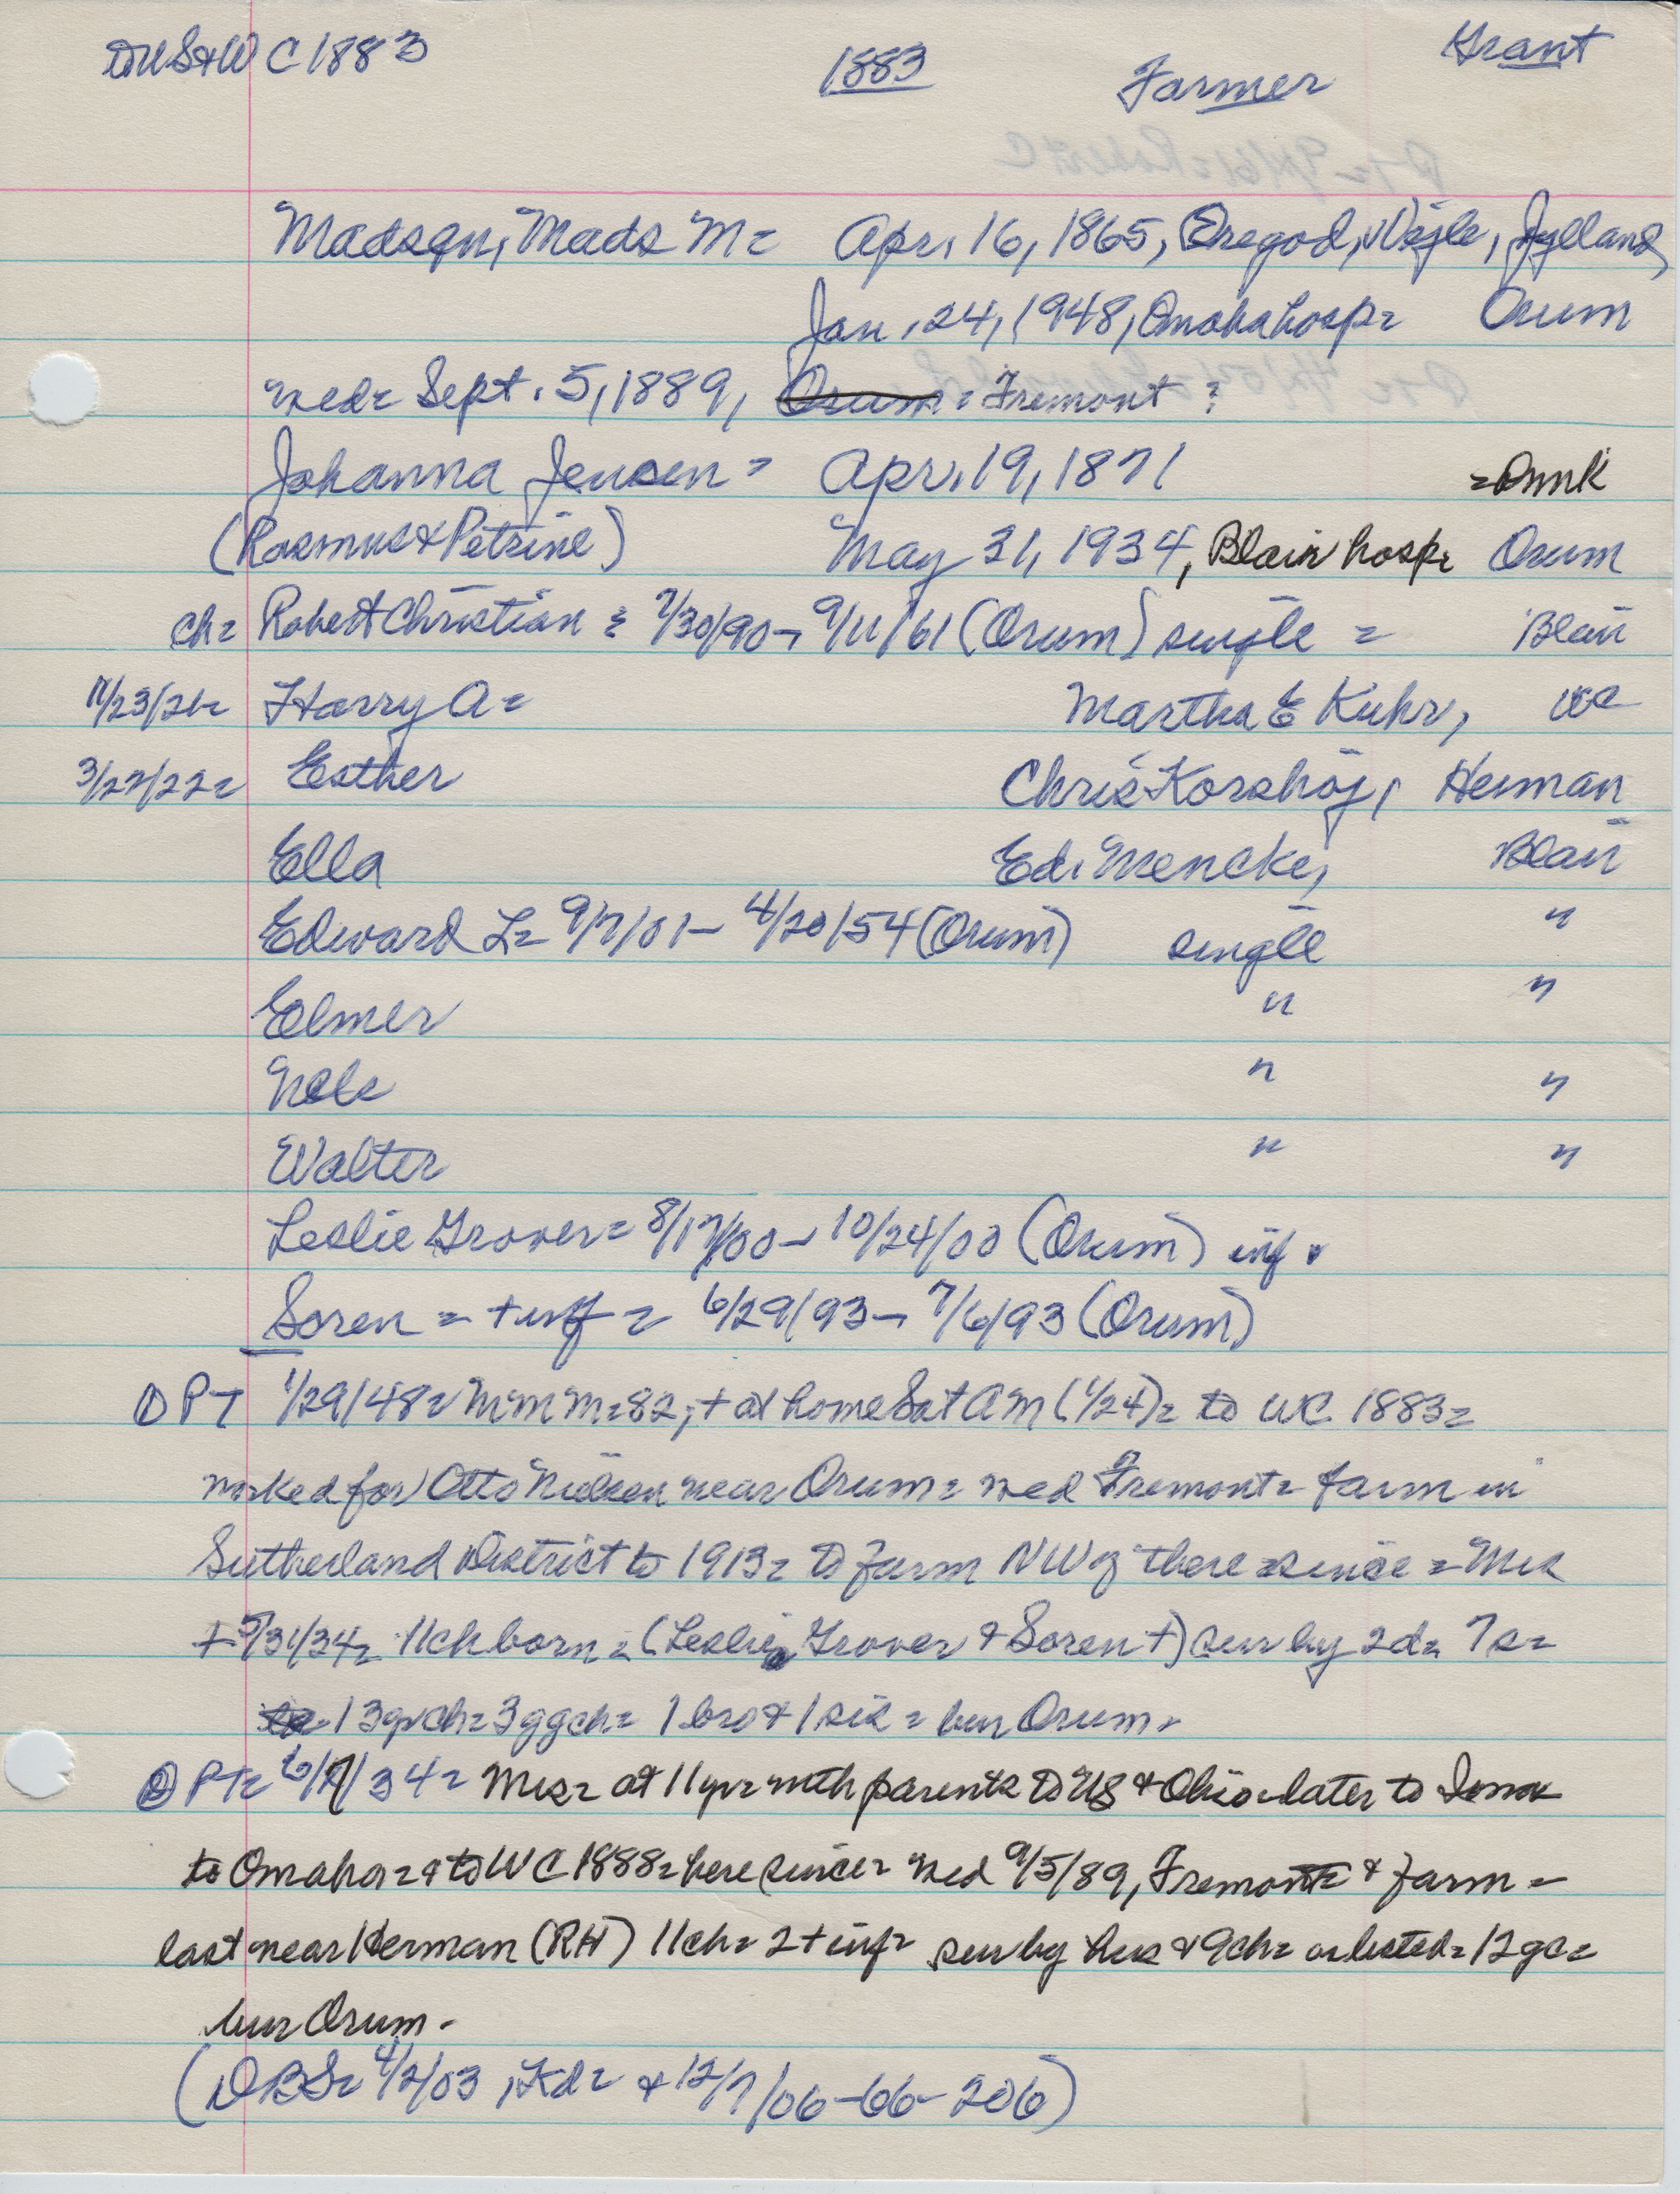 to US & WC 1883
1883 Farmer Grant
Madsen, Mads M= Apr. 16, 1865, Oregod, Vejle, Jylland,
Jan. 24, 1948, Omaha hosp= Orum
wed= Sept. 5, 1889, Orum = Fremont ?
Johanna Jensen = Apr. 19, 1871 = Dmk
(Rasmus & Petrine) May 31, 1934, Blair hosp= Orum
ch= Robert Christian = 7/30/90 - 9/11/61 (Orum) single = Blair
11/23/21= Harry A= Martha E Kuhr, WC
3/22/22= Esther Chris Korshoj, Herman
Ella Ed. Mencke, Blair
Edward L= 9/7/01 - 4/20/54 (Orum) single "
Elmer " "
Nels " "
Walter " "
Leslie Grover = 8/17/00 - 10/24/00 (Orum) inf.
Soren = + inf = 6/29/93 - 7/6/93 (Orum)
① PT 1/29/48= MMM=82; + at home Sat AM (1/24)= to WC 1883=
worked for Otto Nielsen near Orum= wed Fremont= farm in
Sutherland District to 1913= to farm NW of there since = Mrs
+ 5/31/34= 11 ch born = (Leslie Grover & Soren +) sur by 2d= 7s=
13 grch= 3 ggch= 1 bro & 1 sis = bur Orum=
② PT= 6/7/34= Mrs= at 11 yr= with parents to US & Ohio= later to Iowa
to Omaha= & to WC 1888= here since= wed 9/5/89, Fremont= & farm=
last near Herman (RH) 11 ch= 2 + inf= sur by hus & 9 ch= as listed= 12 gc=
bur Orum.
(DBS= 4/2/03, Kd= & 12/7/06-66-206)